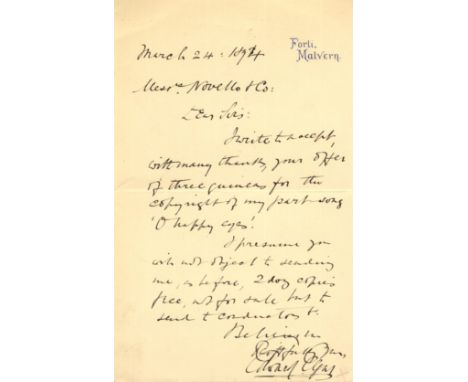 Forli,
Malvern.
March 24: 1894
Messrs Novello & Co:
Dear Sirs:
I write to accept,
with many thanks, your offer
of three guineas for the
copyright of my part-song
'O happy eyes'.
I presume you
will not object to sending
me, as before, 2 doz copies
free, not for sale but to
send to conductors &c.
Believe me
Yours
Edward Elgar